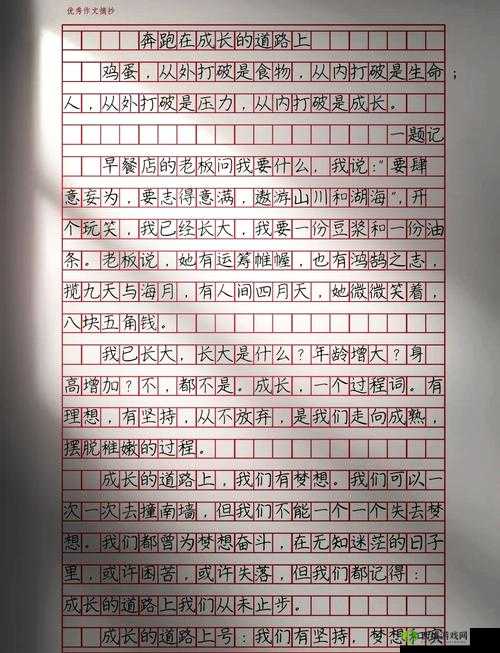 优秀作文摘抄
奔跑在成长的道路上
鸡蛋，从外打破是食物，从内打破是生命；
人，从外打破是压力，从内打破是成长。
一题记
早餐店的老板问我要什么，我说：“要肆
意妄为，要志得意满，遨游山川和湖海”，开
个玩笑，我已经长大，我要一份豆浆和一份油
条。老板说，她有运筹帷幄，也有鸿鹄之志，
揽九天与海月，有人间四月天，她微微笑着，
八块五角钱。
我已长大，长大是什么？年龄增大？身
高增加？不，都不是。成长，一个过程词。有
理想，有坚持，从不放弃，是我们走向成熟，
摆脱稚嫩的过程。
成长的道路上，我们有梦想。我们可以一
次一次去撞南墙，但我们不能一个一个失去梦
想。我们都曾为梦想奋斗，在无知迷茫的日子
里，或许困苦，或许失落，但我们都记得：
成长的道路上我们从未止步。
成长的道路上号：我们有坚持，梦想
游戏网